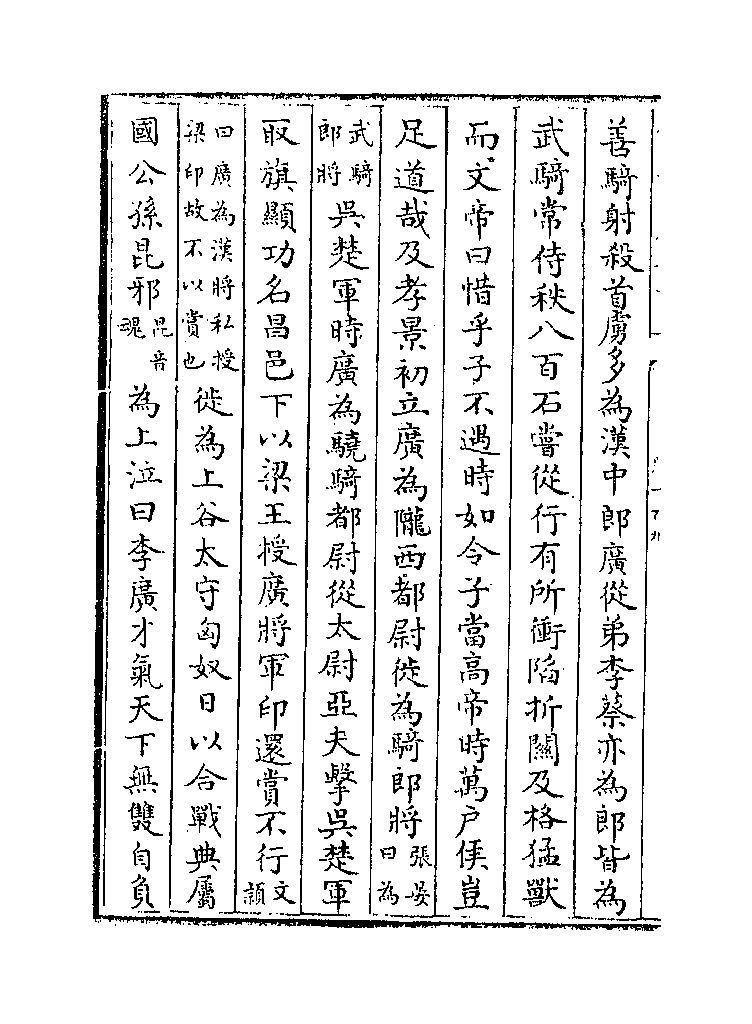 善騎射殺首虜多為漢中郎廣從弟李蔡亦為郎皆為
武騎常侍秩八百石嘗從行有所衝陷折關及格猛獸
而文帝曰惜乎子不遇時如令子當高帝時萬户侯豈
足道哉及孝景初立廣為隴西都尉徙為騎郎將張晏曰為
武騎郎將吳楚軍時廣為驍騎都尉從太尉亞夫擊吳楚軍
取旗顯功名昌邑下以梁王授廣將軍印還賞不行文穎
曰廣為漢將私授梁印故不以賞也徙為上谷太守匈奴日以合戰典屬
國公孫昆邪昆音魂為上泣曰李廣才氣天下無雙自負